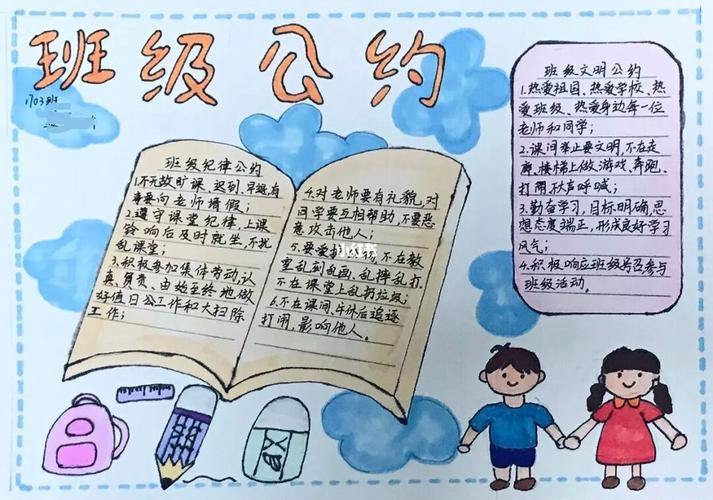 班级公约
1703班
班级纪律公约
1.不无故旷课、迟到、早退,有
事要向老师请假;
2.遵守课堂纪律,上课
铃响后及时就坐,不扰
乱课堂;
3.积极参加集体劳动,认
真、负责、由始至终地做
好值日公工作和大扫除
工作;
4.对老师要有礼貌,对
同学要互相帮助,不要恶
意攻击他人;
5.要爱护 ,不在教
室乱刻乱画,乱摔乱打
不在课堂上乱扔垃圾;
6.不在课间、午休后追逐
打闹,影响他人。
小红书
班级文明公约
1.热爱祖国、热爱学校、热
爱班级、热爱身边每一位
老师和同学;
2.课间举止要文明,不在走
廊、楼梯上做游戏、奔跑、
打闹,不大声呼喊;
3.勤奋学习,目标明确,思
想态度端正,形成良好学习
风气;
4.积极响应班级号召参与
班级活动。